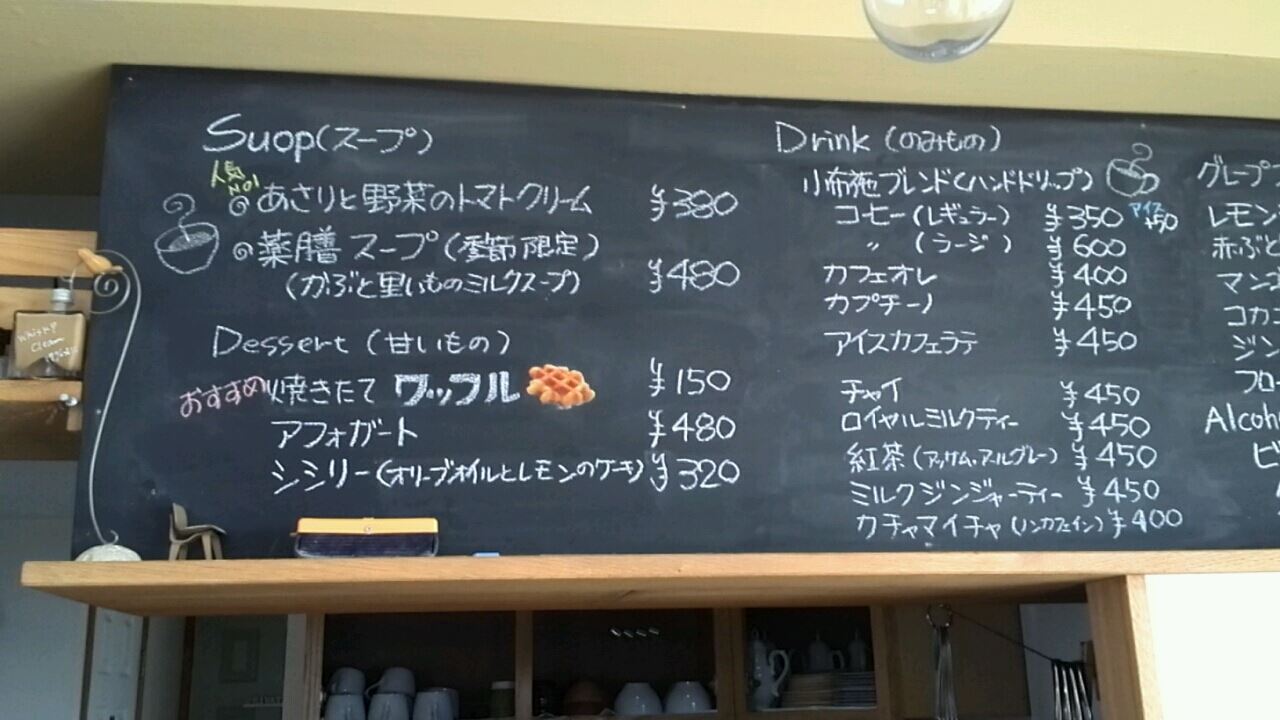 Suop(スープ)
人気
No1
◎あさりと野菜のトマトクリーム ¥380
◎薬膳スープ(季節限定)
(かぶと里いものミルクスープ) ¥480
Dessert(甘いもの)
おすすめ 焼きたて ワッフル ¥150
アフォガート ¥480
シシリー(オリーブオイルとレモンのケーキ) ¥320
Drink(のみもの)
小布施ブレンド(ハンドドリップ)
コーヒー(レギュラー) ¥350 アイス +50
〃 (ラージ) ¥600
カフェオレ ¥400
カプチーノ ¥450
アイスカフェラテ ¥450
チャイ ¥450
ロイヤルミルクティー ¥450
紅茶(アッサム・アールグレー) ¥450
ミルクジンジャーティー ¥450
カチャマイチャ(ノンカフェイン) ¥400
グレープフ
レモン
赤ぶど
マンゴ
コカコ
ジン
フロー
Alcoh
ビ
Whisky
Cleam